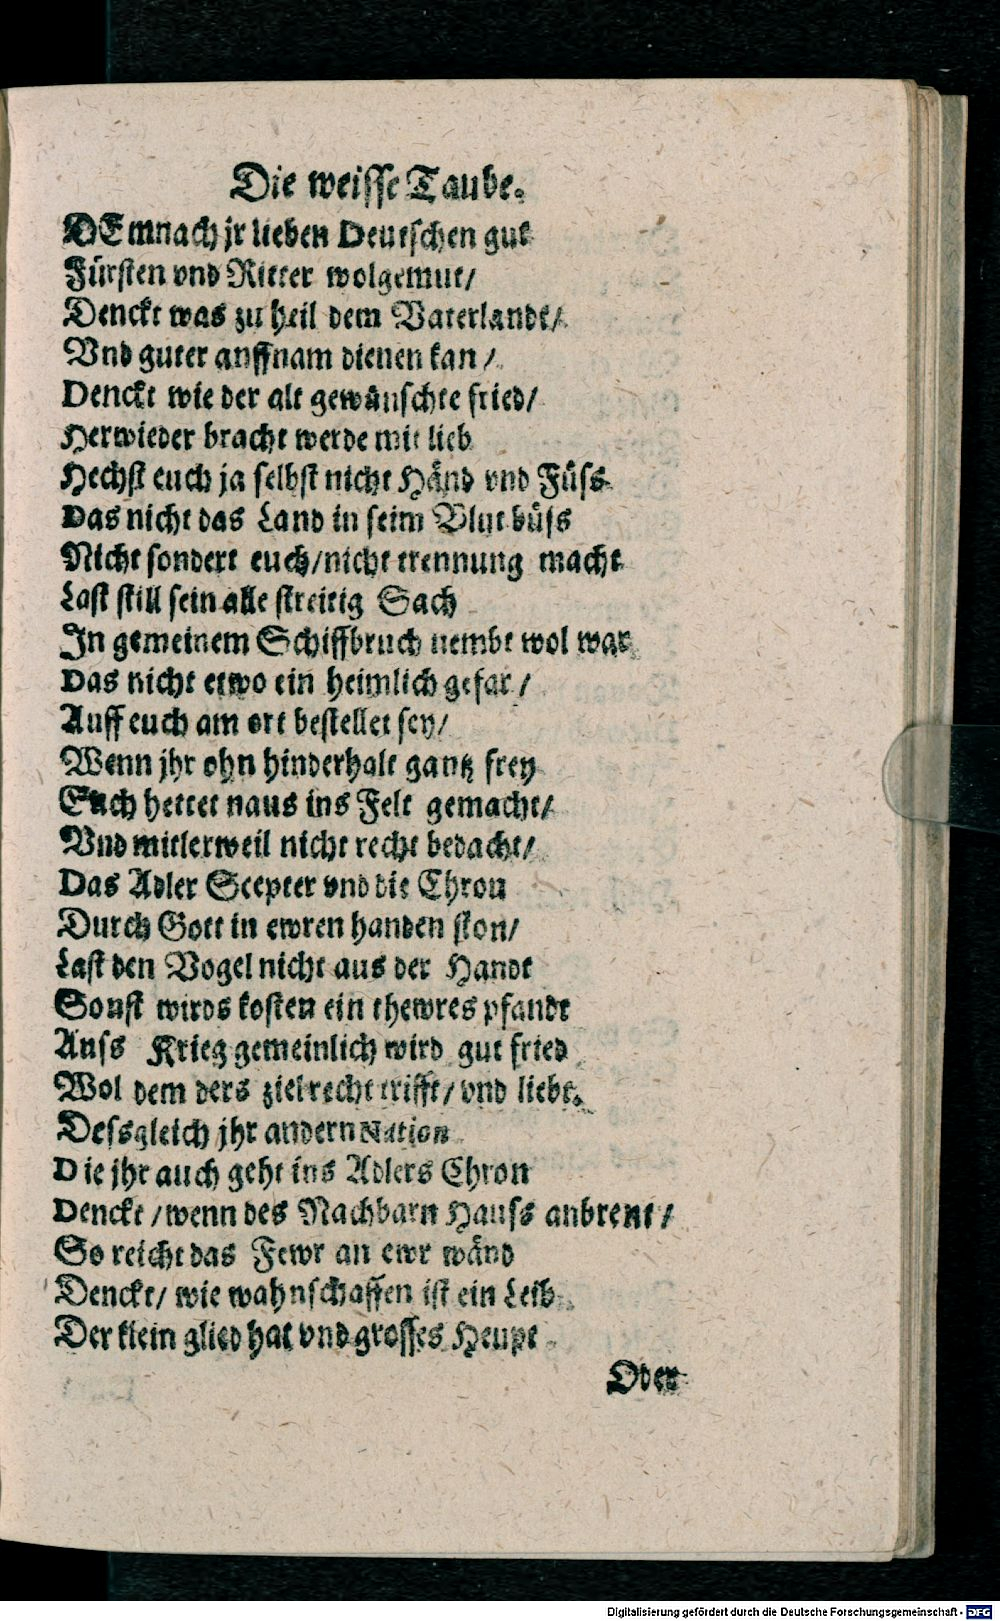 Die weisse Taube.
DEmnach jr lieben Deutschen gut
Fürsten vnd Ritter wolgemut/
Denckt was zu heil dem Vaterlandt/
Vnd guter auffnam dienen kan/
Denckt wie der alt gewünschte fried/
Herwieder bracht werde mit lieb
Hechst euch ja selbst nicht Händ vnd Füss
Das nicht das Land in seim Blut büss
Nicht sondert euch/nicht trennung macht
Last still sein alle streitig Sach
In gemeinem Schiffbruch nembt wol war
Das nicht etwo ein heimlich gefar/
Auff euch am ort bestellet sey/
Wenn jhr ohn hinderhalt gantz frey
Euch hettet naus ins Felt gemacht/
Vnd mitlerweil nicht recht bedacht/
Das Adler Scepter vnd die Chron
Durch Gott in ewren handen ston/
Last den Vogel nicht aus der Handt
Sonst wirds kosten ein thewres pfandt
Auss Krieg gemeinlich wird gut fried
Wol dem ders ziel recht trifft/ vnd liebt.
Dessgleich jhr andern Nation
Die jhr auch geht ins Adlers Chron
Denckt/wenn des Nachbarn Hauss anbrent/
So reicht das Fewr an ewr wänd
Denckt/ wie wahnschaffen ist ein Leib
Der klein glied hat vnd grosses Heupt
Oder
Digitalisierung gefördert durch die Deutsche Forschungsgemeinschaft - DFG